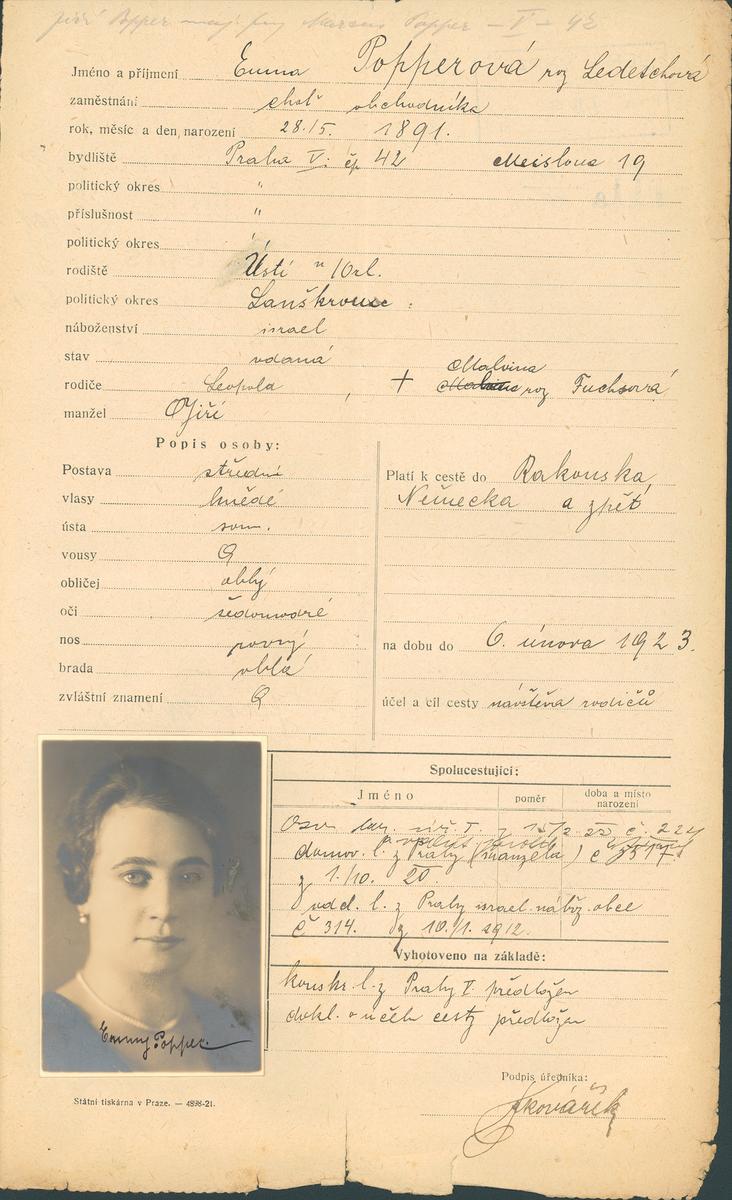 Jiří Popper maj. fy Marcus Popper – V – 42
Jméno a příjmení Emma Popperová roz Ledetschová
zaměstnání choť obchodníka
rok, měsíc a den narození 28./5. 1891.
bydliště Praha V. čp 42 Meislova 19
politický okres "
příslušnost "
politický okres
rodiště Ústí n/Orl.
politický okres Lanškroun
náboženství israel
stav vdaná
rodiče Leopold + Malvina roz Fuchsová
manžel Jiří
Popis osoby:
Postava střední
vlasy hnědé
ústa soum.
vousy 0
obličej oblý
oči šedomodré
nos rovný
brada oblá
zvláštní znamení 0
Platí k cestě do Rakouska,
Německa a zpět
na dobu do 6. února 1923.
účel a cíl cesty návštěva rodičů
Spolucestující:
Jméno poměr doba a místo narození
domov. l. z Prahy (manžela) č
z 1./10. 20
vdel. l. z Prahy israel. nábž. obce
č 314. z 10./1. 1912.
Vyhotoveno na základě:
konskr. l. z Prahy V. předložen
dokl. o účelu cesty předložen
Podpis úředníka:
Emmy Popper
Státní tiskárna v Praze. — 4898-21.